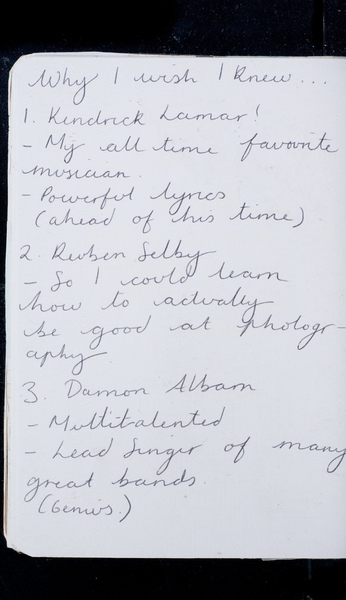 Why I wish I knew...
1. Kendrick Lamar!
- My all time favourite
musician.
- Powerful lyrics
(ahead of his time)
2. Reuben Selby
- So I could learn
how to actually
be good at photogr-
aphy.
3. Damon Albarn
- Multitalented
- Lead Singer of many
great bands.
(Genius.)